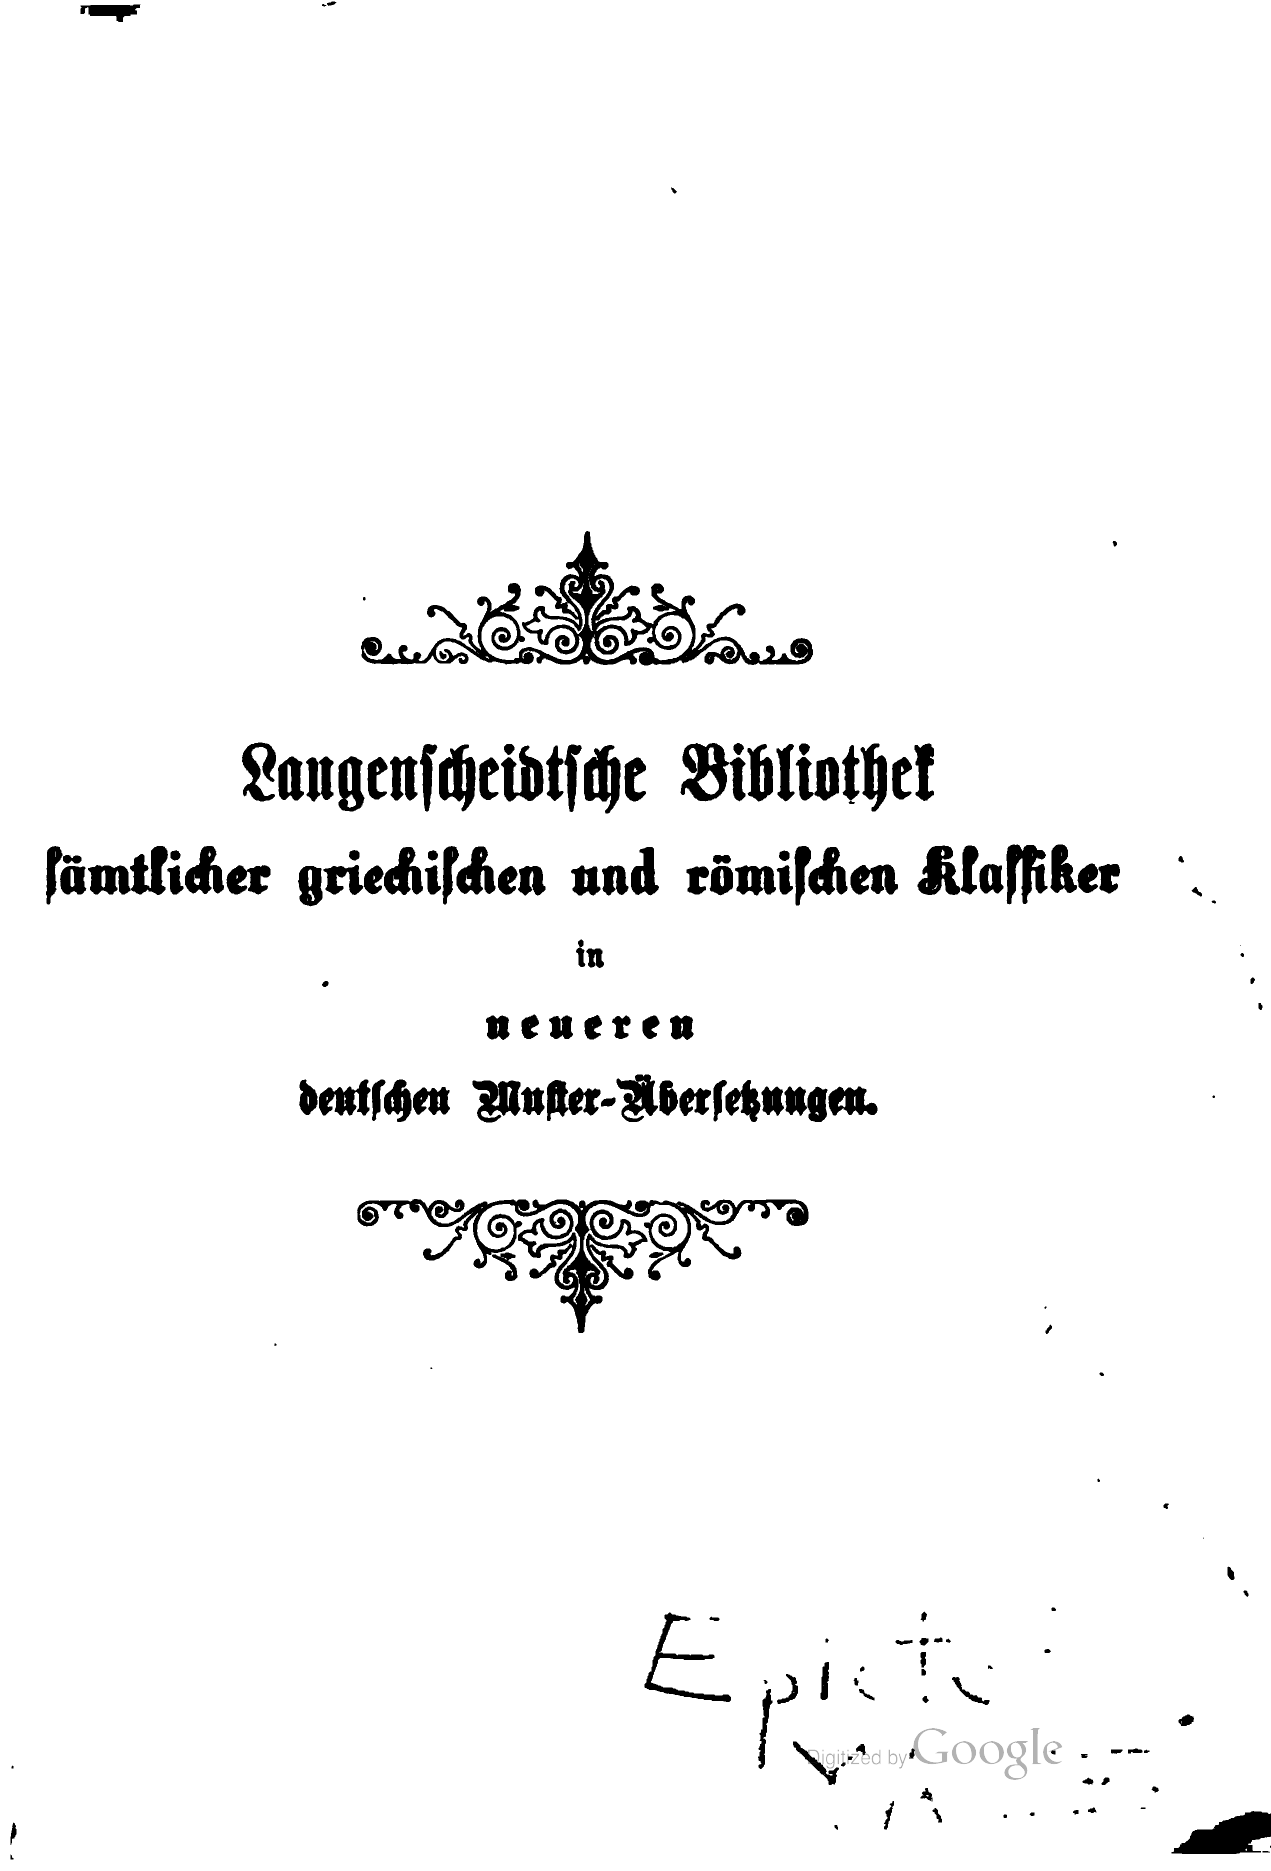 Langenscheidtsche Bibliothek
sämtlicher griechischen und römischen Klassiker
in
neueren
deutschen Muster-Übersetzungen.
Digitized by Google